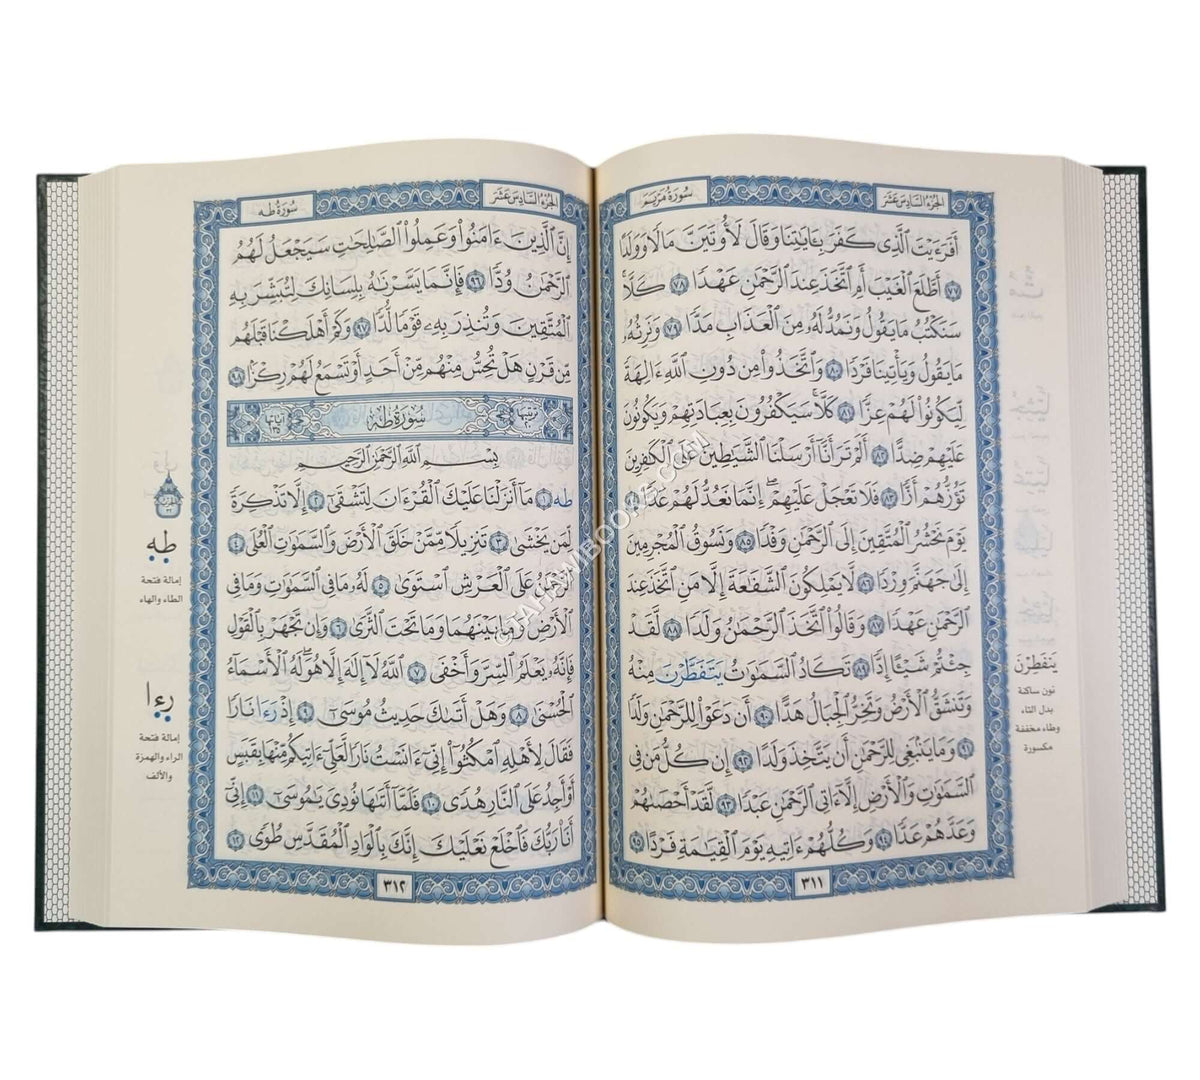 سُورَةُ مَرْيَمَ
الجُزءُ السَّادِسَ عَشَرَ
أَفَرَءَيْتَ ٱلَّذِى كَفَرَ بِـَٔايَٰتِنَا وَقَالَ لَأُوتَيَنَّ مَالًا وَوَلَدًا
٧٧ أَطَّلَعَ ٱلْغَيْبَ أَمِ ٱتَّخَذَ عِندَ ٱلرَّحْمَٰنِ عَهْدًا ٧٨ كَلَّا
سَنَكْتُبُ مَا يَقُولُ وَنَمُدُّ لَهُۥ مِنَ ٱلْعَذَابِ مَدًّا ٧٩ وَنَرِثُهُۥ
مَا يَقُولُ وَيَأْتِينَا فَرْدًا ٨٠ وَٱتَّخَذُوا۟ مِن دُونِ ٱللَّهِ ءَالِهَةً
لِّيَكُونُوا۟ لَهُمْ عِزًّا ٨١ كَلَّا سَيَكْفُرُونَ بِعِبَادَتِهِمْ وَيَكُونُونَ
عَلَيْهِمْ ضِدًّا ٨٢ أَلَمْ تَرَ أَنَّآ أَرْسَلْنَا ٱلشَّيَٰطِينَ عَلَى ٱلْكَٰفِرِينَ
تَؤُزُّهُمْ أَزًّا ٨٣ فَلَا تَعْجَلْ عَلَيْهِمْ إِنَّمَا نَعُدُّ لَهُمْ عَدًّا ٨٤
يَوْمَ نَحْشُرُ ٱلْمُتَّقِينَ إِلَى ٱلرَّحْمَٰنِ وَفْدًا ٨٥ وَنَسُوقُ ٱلْمُجْرِمِينَ
إِلَىٰ جَهَنَّمَ وِرْدًا ٨٦ لَّا يَمْلِكُونَ ٱلشَّفَٰعَةَ إِلَّا مَنِ ٱتَّخَذَ عِندَ
ٱلرَّحْمَٰنِ عَهْدًا ٨٧ وَقَالُوا۟ ٱتَّخَذَ ٱلرَّحْمَٰنُ وَلَدًا ٨٨ لَّقَدْ
جِئْتُمْ شَيْـًٔا إِدًّا ٨٩ تَكَادُ ٱلسَّمَٰوَٰتُ يَتَفَطَّرْنَ مِنْهُ
وَتَنشَقُّ ٱلْأَرْضُ وَتَخِرُّ ٱلْجِبَالُ هَدًّا ٩٠ أَن دَعَوْا۟ لِلرَّحْمَٰنِ وَلَدًا
٩١ وَمَا يَنۢبَغِى لِلرَّحْمَٰنِ أَن يَتَّخِذَ وَلَدًا ٩٢ إِن كُلُّ مَن فِى
ٱلسَّمَٰوَٰتِ وَٱلْأَرْضِ إِلَّآ ءَاتِى ٱلرَّحْمَٰنِ عَبْدًا ٩٣ لَّقَدْ أَحْصَىٰهُمْ
وَعَدَّهُمْ عَدًّا ٩٤ وَكُلُّهُمْ ءَاتِيهِ يَوْمَ ٱلْقِيَٰمَةِ فَرْدًا ٩٥
٣١١
يَنفَطِرْنَ
نون ساكنة
بدل التاء
وطاء مخففة
مكسورة
سُورَةُ طه
الجُزءُ السَّادِسَ عَشَرَ
إِنَّ ٱلَّذِينَ ءَامَنُوا۟ وَعَمِلُوا۟ ٱلصَّٰلِحَٰتِ سَيَجْعَلُ لَهُمُ
ٱلرَّحْمَٰنُ وُدًّا ٩٦ فَإِنَّمَا يَسَّرْنَٰهُ بِلِسَانِكَ لِتُبَشِّرَ بِهِ
ٱلْمُتَّقِينَ وَتُنذِرَ بِهِۦ قَوْمًا لُّدًّا ٩٧ وَكَمْ أَهْلَكْنَا قَبْلَهُم
مِّن قَرْنٍ هَلْ تُحِسُّ مِنْهُم مِّنْ أَحَدٍ أَوْ تَسْمَعُ لَهُمْ رِكْزًۢا ٩٨
ترتيبها ٢٠ سُورَةُ طه آياتها
بِسْمِ ٱللَّهِ ٱلرَّحْمَٰنِ ٱلرَّحِيمِ
طه ١ مَآ أَنزَلْنَا عَلَيْكَ ٱلْقُرْءَانَ لِتَشْقَىٰٓ ٢ إِلَّا تَذْكِرَةً
لِّمَن يَخْشَىٰ ٣ تَنزِيلًا مِّمَّنْ خَلَقَ ٱلْأَرْضَ وَٱلسَّمَٰوَٰتِ ٱلْعُلَى ٤
ٱلرَّحْمَٰنُ عَلَى ٱلْعَرْشِ ٱسْتَوَىٰ ٥ لَهُۥ مَا فِى ٱلسَّمَٰوَٰتِ وَمَا فِى
ٱلْأَرْضِ وَمَا بَيْنَهُمَا وَمَا تَحْتَ ٱلثَّرَىٰ ٦ وَإِن تَجْهَرْ بِٱلْقَوْلِ
فَإِنَّهُۥ يَعْلَمُ ٱلسِّرَّ وَأَخْفَى ٧ ٱللَّهُ لَآ إِلَٰهَ إِلَّا هُوَ لَهُ ٱلْأَسْمَآءُ
ٱلْحُسْنَىٰ ٨ وَهَلْ أَتَىٰكَ حَدِيثُ مُوسَىٰٓ ٩ إِذْ رَءَا نَارًا
فَقَالَ لِأَهْلِهِ ٱمْكُثُوٓا۟ إِنِّىٓ ءَانَسْتُ نَارًا لَّعَلِّىٓ ءَاتِيكُم مِّنْهَا بِقَبَسٍ
أَوْ أَجِدُ عَلَى ٱلنَّارِ هُدًى ١٠ فَلَمَّآ أَتَىٰهَا نُودِىَ يَٰمُوسَىٰٓ ١١ إِنِّىٓ
أَنَا۠ رَبُّكَ فَٱخْلَعْ نَعْلَيْكَ إِنَّكَ بِٱلْوَادِ ٱلْمُقَدَّسِ طُوًى ١٢
٣١٢
طه
إمالة فتحة
الطاء والهاء
رءا
إمالة فتحة
الراء والهمزة
والألف